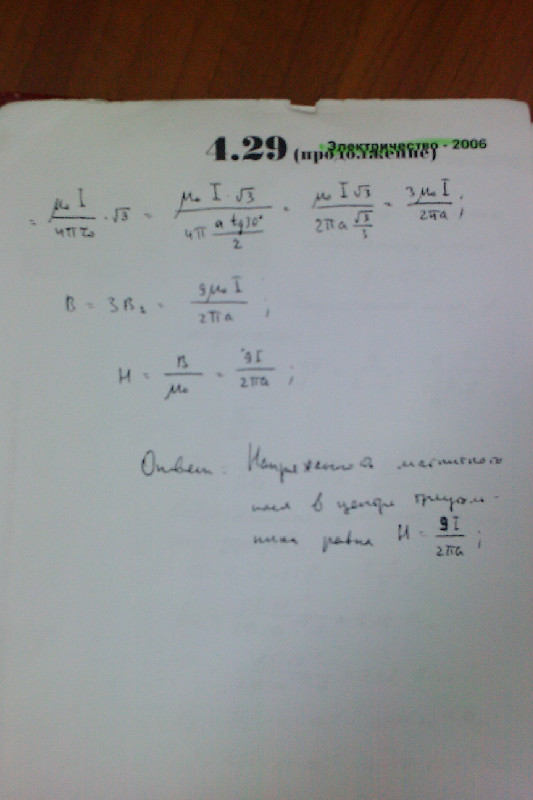 Электричество - 2006
4.29 (продолжение)
= μ₀ I / 4π r₀ · √3 = μ₀ I · √3 / 4π (a tg30° / 2) = μ₀ I √3 / 2πa (√3 / 3) = 3μ₀ I / 2πa ;
B = 3B₁ = 9μ₀ I / 2πa ;
H = B / μ₀ = 9I / 2πa ;
Ответ: Напряженность магнитного
поля в центре треуголь-
ника равна H = 9I / 2πa ;